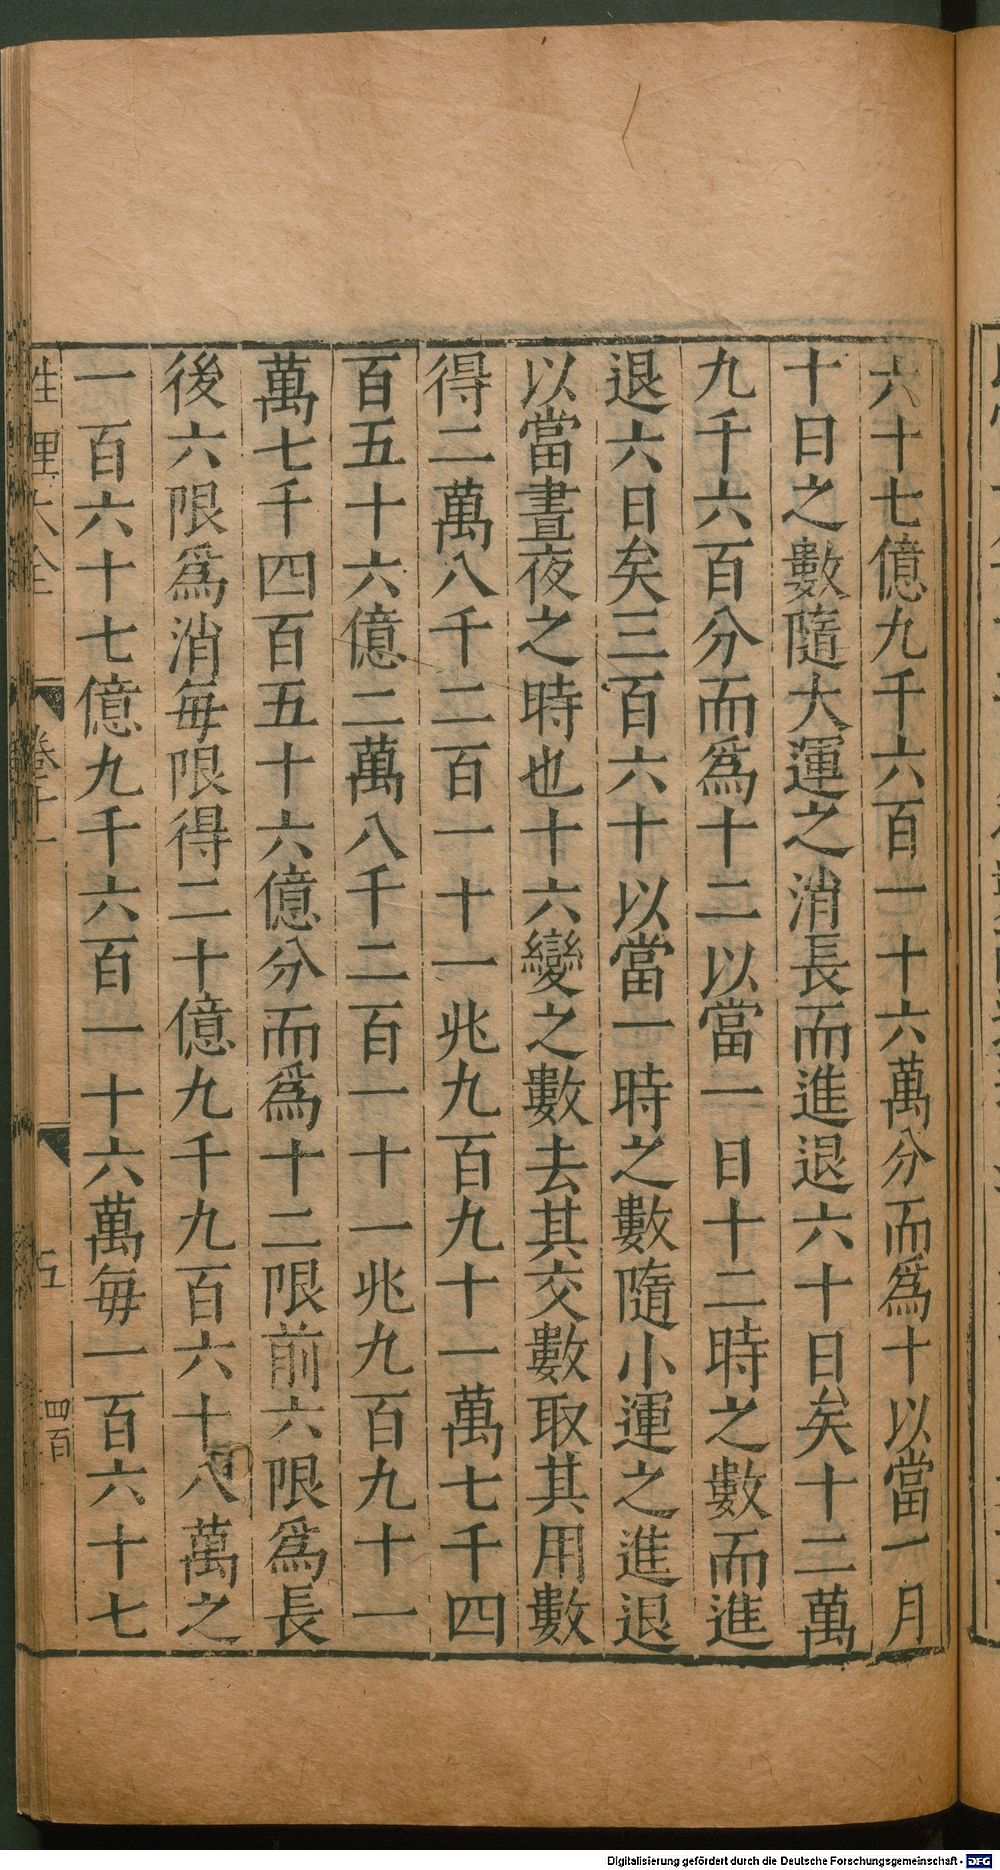 六十七億九千六百一十六萬分而爲十以當一月
十日之數隨大運之消長而進退六十日矣十二萬
九千六百分而爲十二以當一日十二時之數而進
退六日矣三百六十以當一時之數隨小運之進退
以當晝夜之時也十六變之數去其交數取其用數
得二萬八千二百一十一兆九百九十一萬七千四
百五十六億二萬八千二百一十一兆九百九十一
萬七千四百五十六億分而爲十二限前六限爲長
後六限爲消毎限得二十億九千九百六十八萬之
一百六十七億九千六百一十六萬毎一百六十七
性理大全 卷十一 五 四百
Digitalisierung gefördert durch die Deutsche Forschungsgemeinschaft - DFG